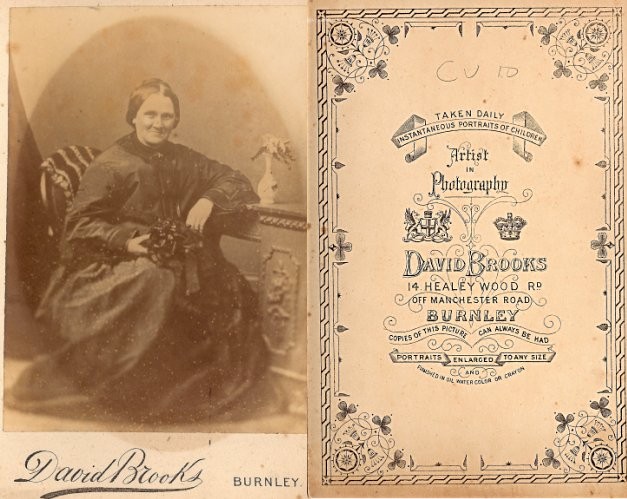 David Brooks BURNLEY.
CV 10
TAKEN DAILY
INSTANTANEOUS PORTRAITS OF CHILDREN
Artist
IN
Photography
DAVID BROOKS
14 HEALEY WOOD RD
OFF MANCHESTER ROAD
BURNLEY
COPIES OF THIS PICTURE CAN ALWAYS BE HAD
PORTRAITS ENLARGED TO ANY SIZE
AND
FINISHED IN OIL WATER COLOR OR CRAYON